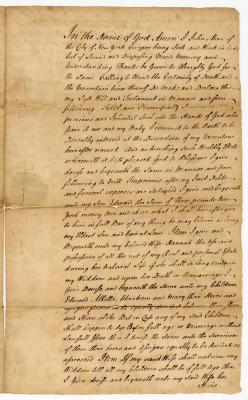 In the Name of God Amen I John
the City of New York being Sick and Weak in
but of Sound and Disposing Mind Memory and
Understanding Thanks be Given to Almighty God for
the Same Calling to Mind the Certainty of Death and
the Uncertain time thereof Do Make and Declare this
my Last Will and Testament in Manner and form
following First and Principally I commend my
precious and Immortal Soul into the Hands of God who
gave it me and my Body I commend to the Earth to be
Decently interred at the Discretion of my Executors
hereafter named And as touching Such Worldly Estate
wherewith it hath pleased God to Bless me I give
devise and dispose of the Same in Manner and form
following to Wit Imprimis after my Just Debts
and funeral expences are Satisfied I give and bequeath
unto my Son Edward the Sum of three pounds New
York money
to him in full Bar of any thing he may Claim as being
my Eldest Son and Heir at Law Item I give and
Bequeath unto my beloved Wife Hannah the use and
possession of all the rest of my real and personal Estate
during her natural Life if she shall so long continue
my Widdow and upon her Death or Remarriage I
give Devise and bequeath the same unto my Children
Edward Abraham and Mary their Heirs and
and Share alike But in Case any of my said Children
Shall happen to Dye before full age or Marriage without
Lawfull Issue then I devise the same unto the Survivors
of them their heirs and assigns equally to be divided as
aforesaid Item If my said Wife shall continue my
Widdow till all my Children shall be of full age then
I Give Devise and bequeath unto my Said Wife her
Heirs